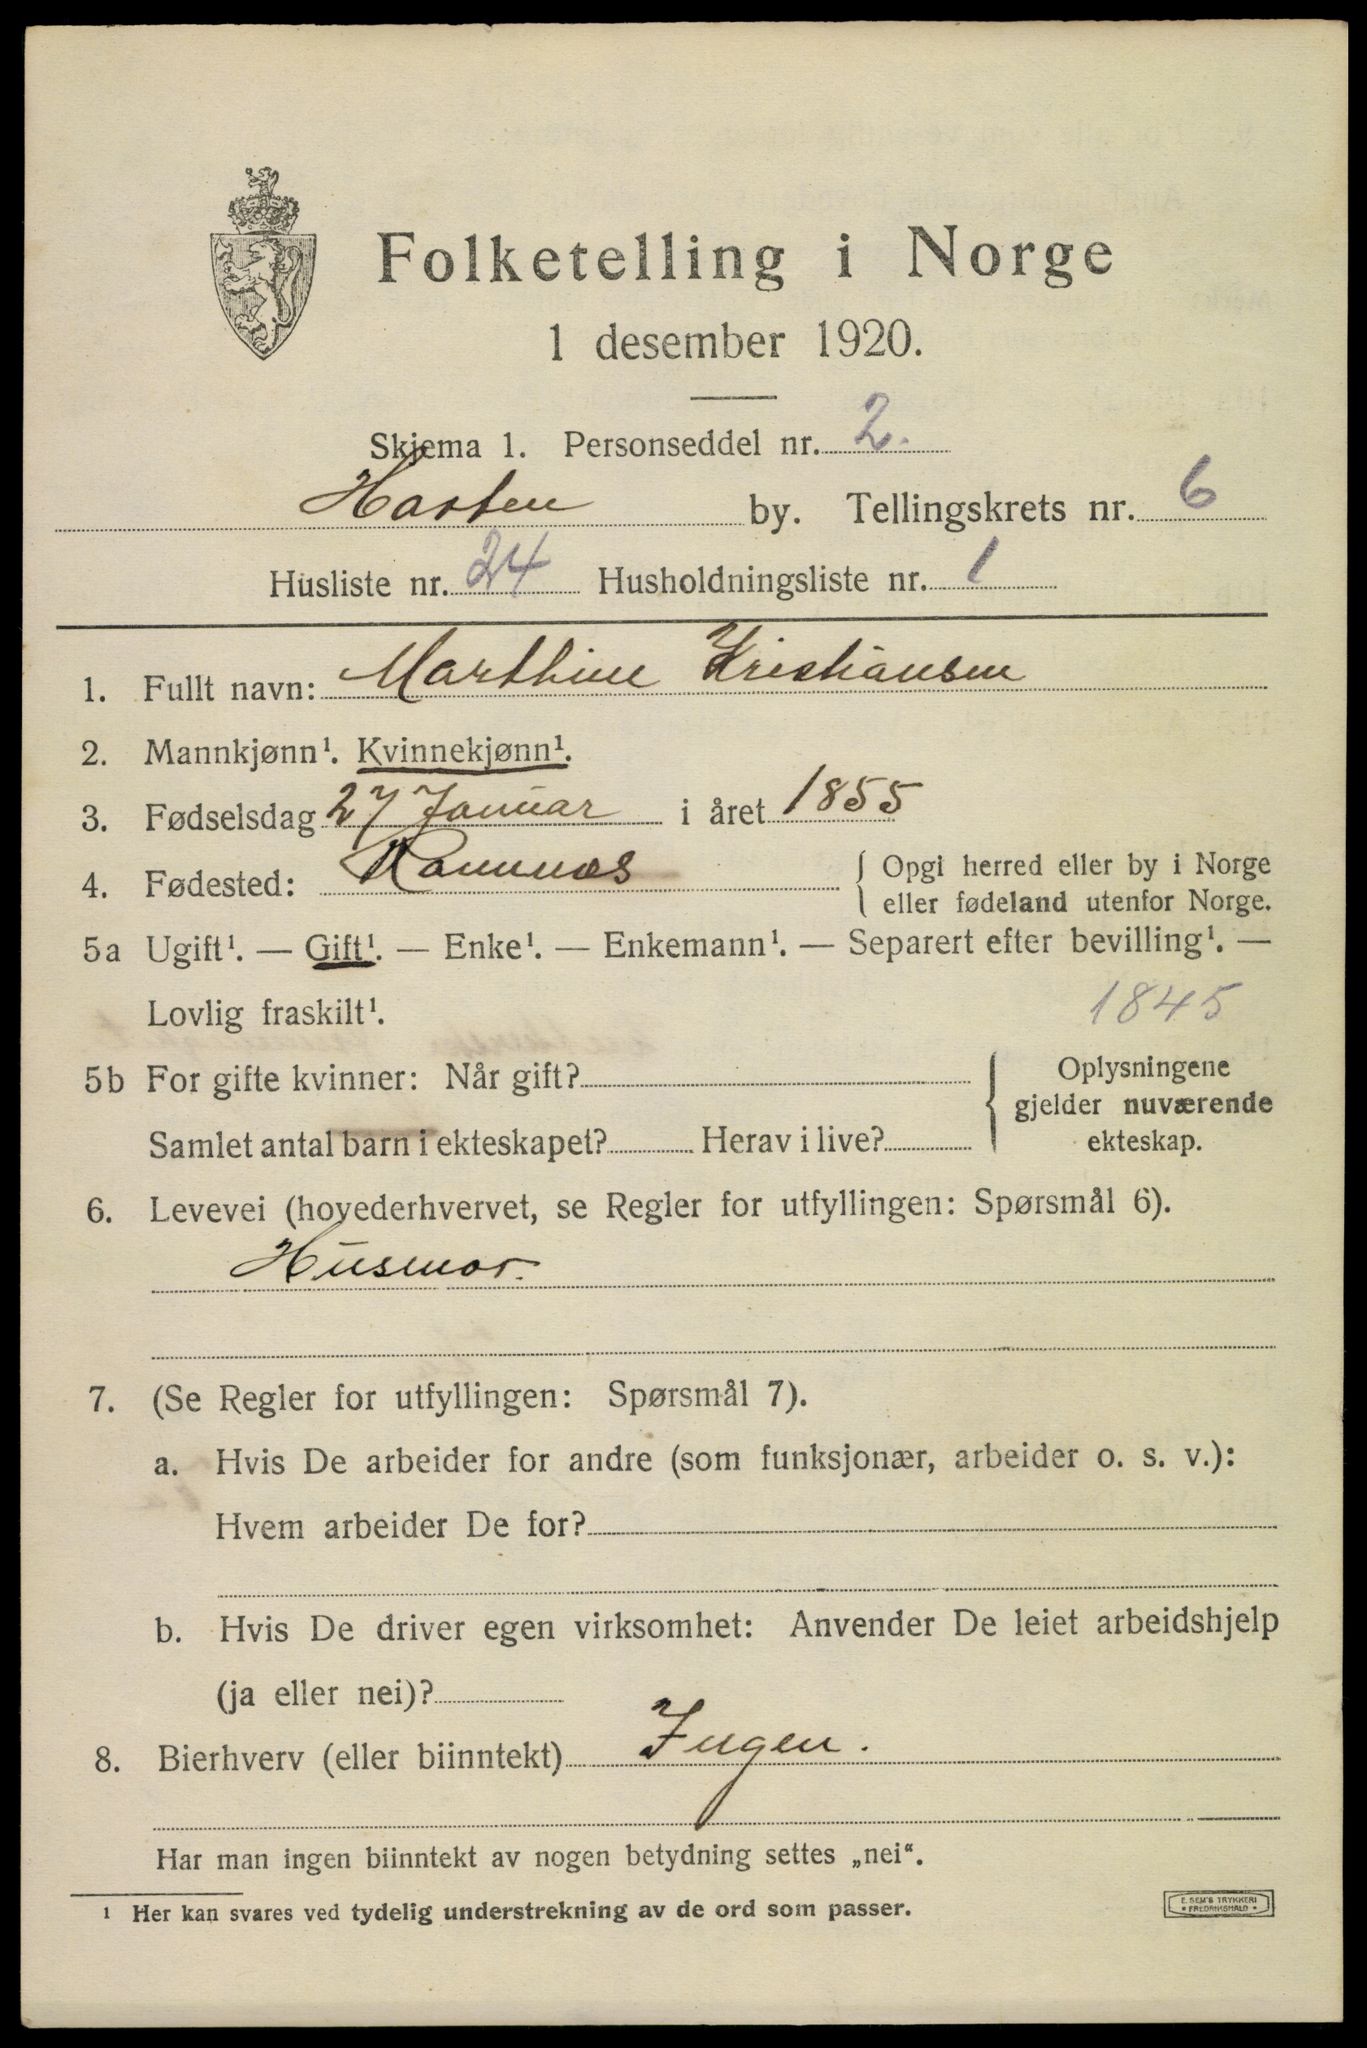 Folketelling i Norge
1 desember 1920.
Skjema 1. Personseddel nr. 2.
Horten by. Tellingskrets nr. 6
Husliste nr. 24 Husholdningsliste nr. 1
1. Fullt navn: Marthine Kristiansen
2. Mannkjønn¹. Kvinnekjønn¹.
3. Fødselsdag 27 Januar i året 1855
4. Fødested: Ramnæs { Opgi herred eller by i Norge
eller fødeland utenfor Norge.
5a Ugift¹. — Gift¹. — Enke¹. — Enkemann¹. — Separert efter bevilling¹. —
Lovlig fraskilt¹. 1845
5b For gifte kvinner: Når gift? { Oplysningene
gjelder nuværende
Samlet antal barn i ekteskapet? Herav i live? ekteskap.
6. Levevei (hovederhvervet, se Regler for utfyllingen: Spørsmål 6).
Husmor.
7. (Se Regler for utfyllingen: Spørsmål 7).
a. Hvis De arbeider for andre (som funksjonær, arbeider o. s. v.):
Hvem arbeider De for?
b. Hvis De driver egen virksomhet: Anvender De leiet arbeidshjelp
(ja eller nei)?
8. Bierhverv (eller biinntekt) Ingen.
Har man ingen biinntekt av nogen betydning settes „nei“.
¹ Her kan svares ved tydelig understrekning av de ord som passer.
E. SEM'S TRYKKERI
* FREDRIKSHALD *